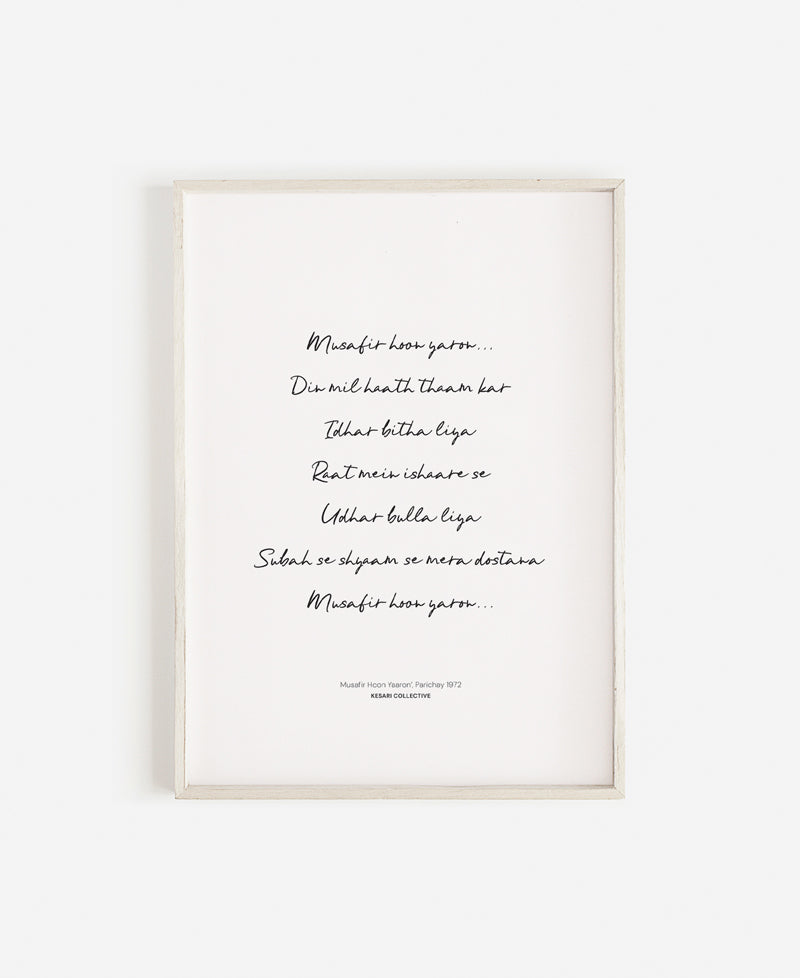 Musafir hoon yaron...
Din mil haath thaam kar
Idhar bitha liya
Raat mein ishaare se
Udhar bulla liya
Subah se shyaam se mera dostana
Musafir hoon yaron...
Musafir Hoon Yaaron', Parichay 1972
KESARI COLLECTIVE